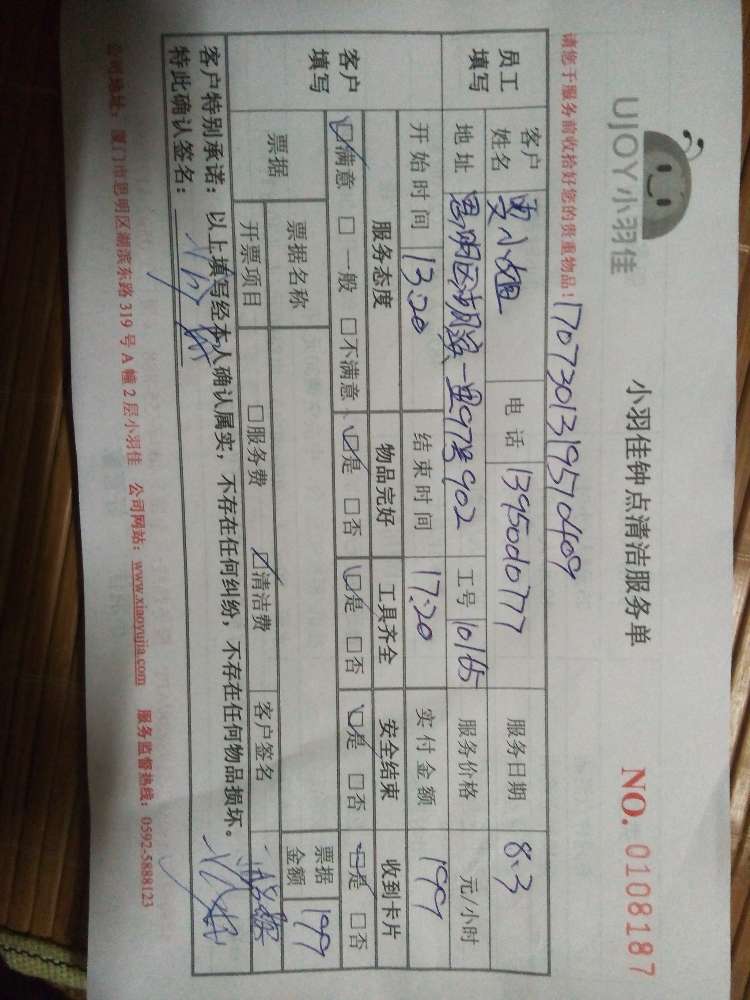 UJOY小羽佳
小羽佳钟点清洁服务单
NO. 0108187
请您于服务前收拾好您的贵重物品！
1707301319570409
员工填写
客户姓名 小姐 电话 13950010777 服务日期 8.3
地址 思明区湖滨一里97号902 工号 10165 服务价格 元/小时
开始时间 13:20 结束时间 17:20 实付金额 199
客户填写
服务态度 物品完好 工具齐全 安全结束 收到卡片
☑满意 □一般 □不满意 ☑是 □否 ☑是 □否 ☑是 □否 ☑是 □否
票据 票据名称 票据金额 199
开票项目 □服务费 ☑清洁费 客户签名
客户特别承诺：以上填写经本人确认属实，不存在任何纠纷，不存在任何物品损坏。
特此确认签名：
公司地址：厦门市思明区湖滨东路 319 号 A 幢 2 层小羽佳 公司网站：www.xiaoyujia.com 服务监督热线：0592-5888123